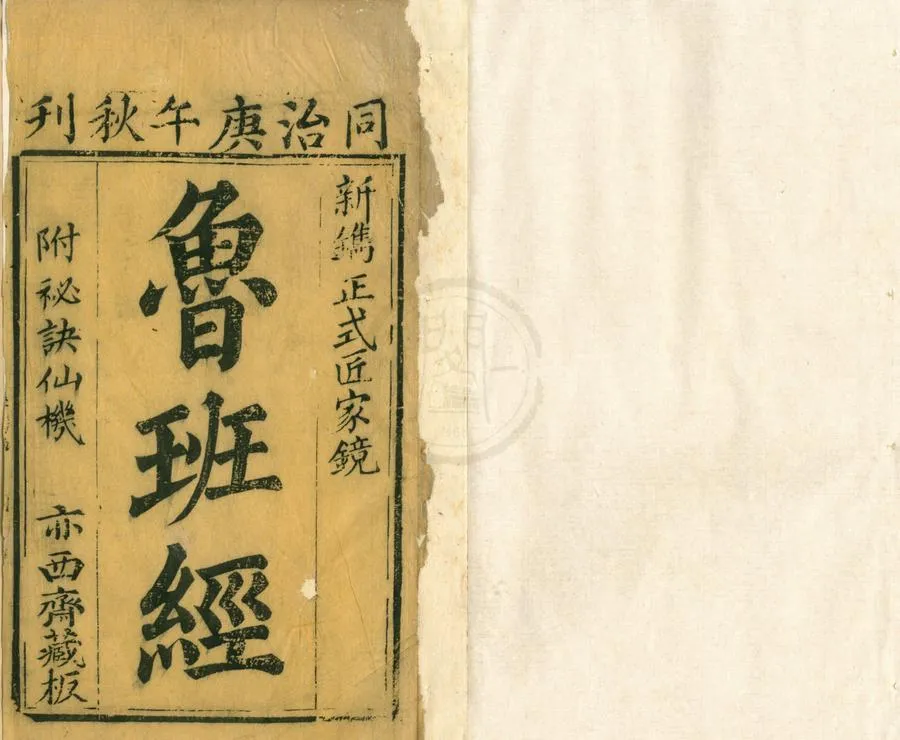 同治庚午秋刊
新鐫正式匠家鏡
魯班經
附祕訣仙機 亦西齋藏板